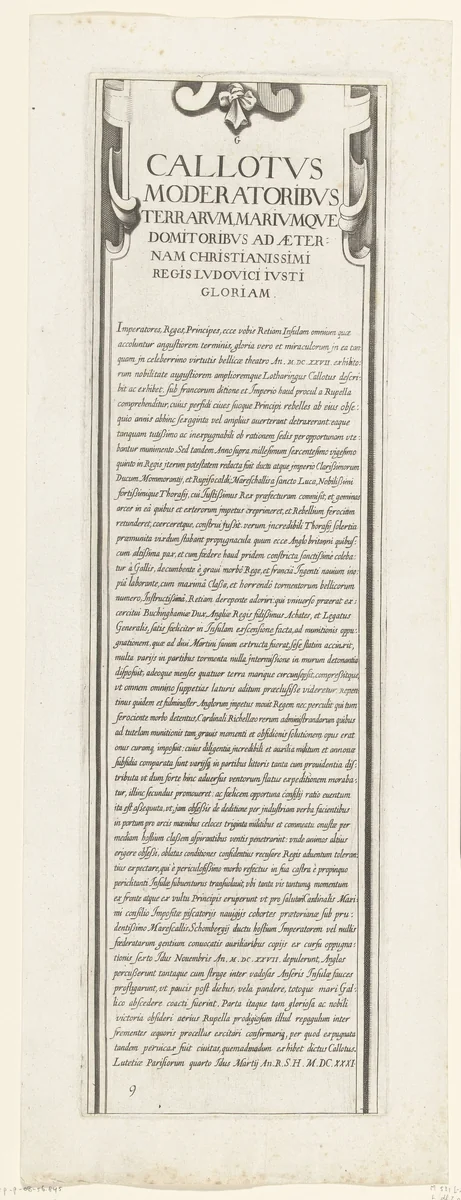 G
CALLOTVS
MODERATORIBVS
TERRARVM, MARIVMQVE
DOMITORIBVS AD ÆTER:
NAM CHRISTIANISSIMI
REGIS LVDOVICI IVSTI
GLORIAM.
Imperatores, Reges, Principes, ecce vobis Retiam Insulam omnium quæ
accoluntur angustiorem terminis, gloria vero et miraculorum jn ea tan
quam jn celeberrimo virtutis bellicæ theatro An. M. DC. XXVII. exhibito:
rum nobilitate augustiorem amplioremque Lotharingus Callotus descri
bit ac exhibet, sub francorum ditione et Imperio haud procul a Rupella
comprehenditur, cuius perfidi ciues suoque Principi rebelles ab eius obse:
quio annis abhinc sexaginta vel amplius auerterant detraxerant: eaque
tanquam tutissimo ac inexpugnabili ob rationem sedis per opportunam vte:
bantur munimento. Sed tandem Anno supra millesimum sexcentesimo vigesimo
quinto in Regis jterum potestatem redacta fuit ductu atque jmperio Clarissimorum
Ducum Mommorantij, et Rupifocaldi, Mareschallis a sancto Luca, Nobilissimi
fortissimique Thorasij, cui Iustissimus Rex præfecturam commisit, et geminas
arces in eâ quibus et exterorum jmpetus reprimeret, et Rebellium ferociam
retunderet, coerceretque, construi jussit. verum jncredibili Thorasij solertia
præmunita vixdum stabant propugnacula quum ecce Anglo britanni quibus:
cum altissima pax, et cum fœdere haud pridem constricta sanctissimè coleba:
tur à Gallis, decumbente è graui morbo Rege, et francia Ingenti nauium ino:
pia laborante, cum maximâ Classe, et horrendo tormentorum bellicorum
numero, Instructissimâ, Retiam derepente adoriri: qui vniuerso præerat ex:
ercitui Buchinghamiæ Dux, Angliæ Regis fidissimus Achates, et Legatus
Generalis, satis fœliciter in Insulam exscensione facta, ad munitionis oppu:
gnationem, quæ ad diui Martini fanum extructa fuerat, sese statim accinxit,
multa varijs in partibus tormenta nulla jntermissione in murum detonantia
disposuit, adeoque menses quatuor terra marique circunsepsit, compressitque,
vt omnem omnino suppetias laturis aditum præclusisse videretur. repen
tinus quidem et fulminaster Anglorum jmpetus mouit Regem nec perculit qui tum
ferociente morbo detentus, Cardinali Richelæo rerum administrandarum quibus
ad tutelam munitionis tam grauis momenti et obsidionis solutionem, opus erat
onus curamque imposuit: cuius diligentia jncredibili et auxilia militum et annonæ
subsidia comparata sunt varijsque in partibus littoris tanta cum prouidentia dis:
tributa vt dum forte hinc aduersus ventorum flatus expeditionem moraba:
tur, illinc secundus promoueret: ac fœlicem opportuna consilij ratio euentum
ita est assequuta, vt, jam obsessis de deditione per jndustriam verba facientibus
in portum pro arcis mœnibus celoces triginta militibus et commeatu onustæ per
mediam hostium classem aspirantibus ventis penetrarint: vnde animos altius
erigere obsessi, oblatas conditiones confidentius recusare Regis aduentum toleran:
tius expectare, qui è periculosissimo morbo refectus in sua castra è propinquo
periclitanti Insulæ subuenturus transuolauit, vbi tanta vis tantumque momentum
ex fronte atque ex vultu Principis eruperunt vt pro salutari Cardinalis Maxi
mi consilio Impositæ piscatorijs nauigijs cohortes prætorianæ sub pru:
dentissimo Marescalli Schombergij ductu hostium Imperatorem vel nullis
fœderatarum gentium conuocatis auxiliaribus copijs ex cursu oppugna:
tionis sexto Idus Nouembris An. M. DC. XXVII. depulerunt, Anglos
percusserunt tantaque cum strage inter vadosas Anseris Insulæ fauces
profligarunt, vt paucis post diebus, vela pandere, totoque mari Gal:
lico abscedere coacti fuerint. Parta itaque tam gloriosa ac nobili
victoria obsideri acrius Rupella prodigiosum illud repagulum inter
frementes æquoris procellas excitari confirmarique, per quod expugnata
tandem peruicax fuit ciuitas, quemadmodum exhibet dictus Callotus.
Lutetiæ Parisiorum quarto Idus Martij An. R. S. H. M. DC. XXXI.
9